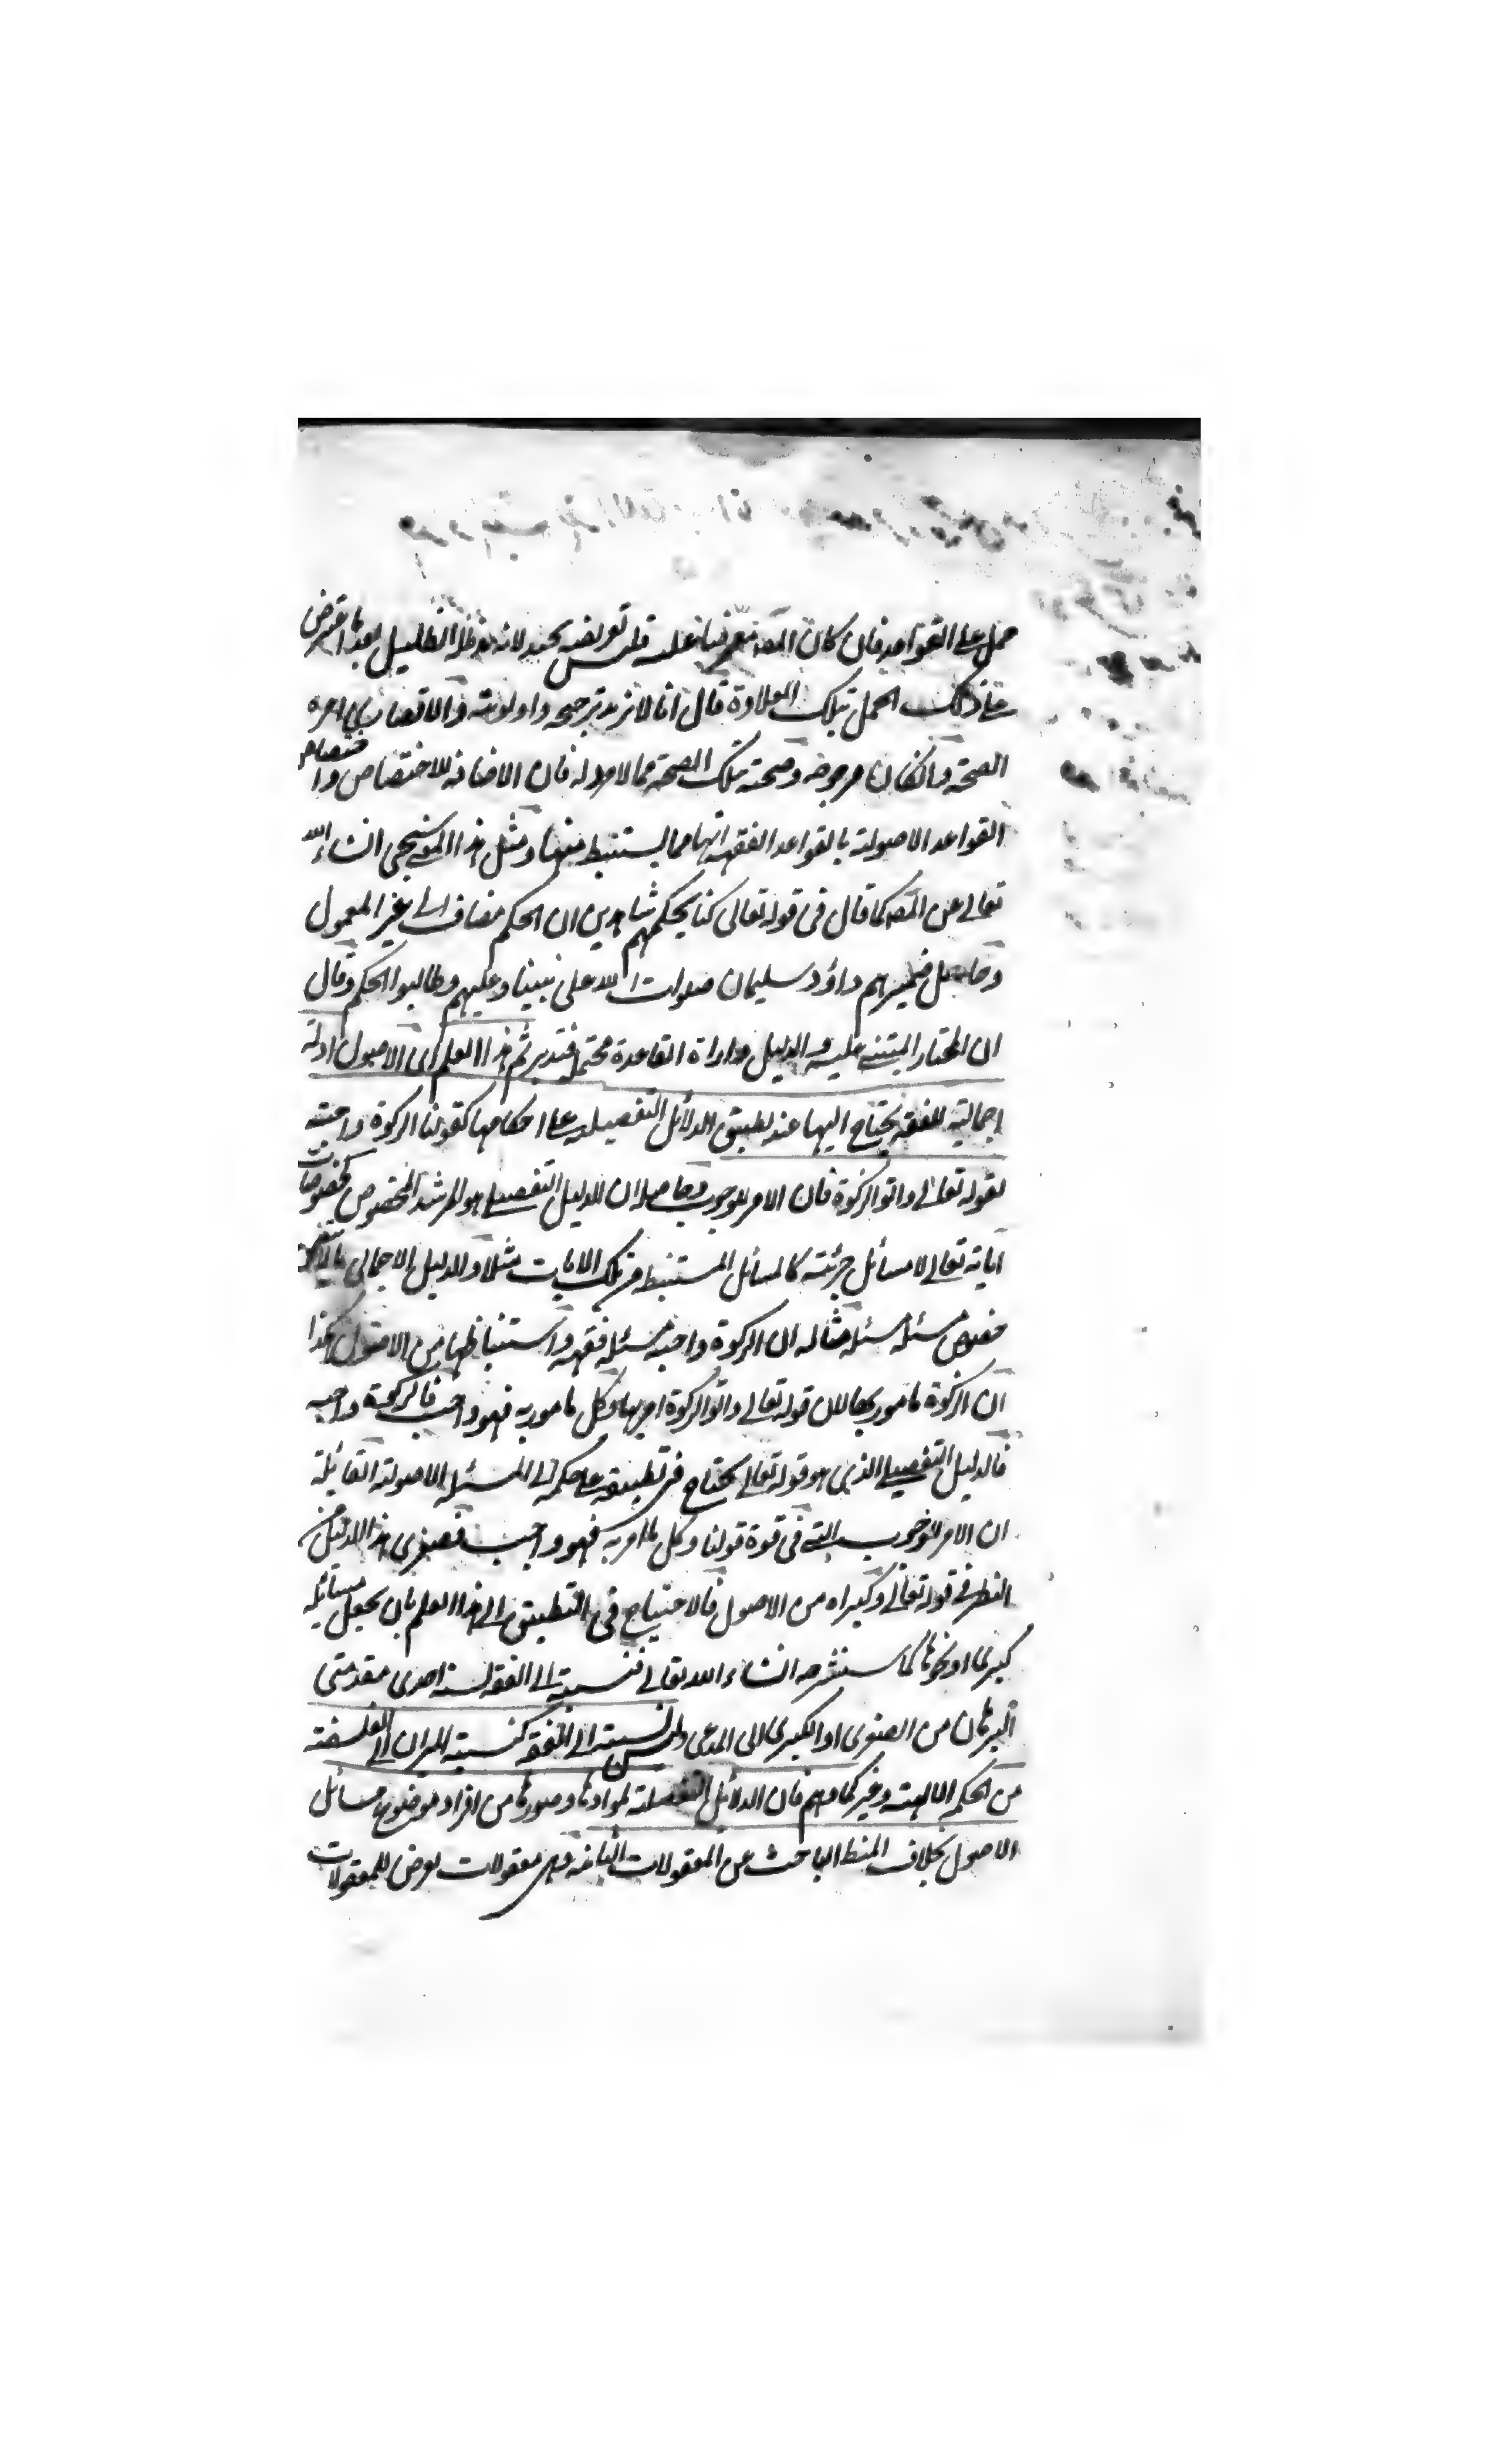 حمل على القواعد فان كان المصـ معرضا عليه فليس تعريضه بجيد لانه بعد ما اعترض
على ذلك الحمل بتلك العلاوة قال انا لا نريد ترجيحه واولويته
الصحة وانكان مرجوحه وصحته بتلك الصحة مما لا مرد له فان الاضافة للاختصاص واختصاص
القواعد الاصولية بالقواعد الفقهية انها مما يستنبط منها ومثل هذا سيجئ انشاء الله
تعالى عن المصـ كما قال فى قوله تعالى كنا لحكمهم شاهدين ان الحكم مضاف الى غير المعمول
وحاصل ضميرهم داؤد وسليمان صلوات الله على نبينا وعليهم وطالبوا الحكم وقال
ان المختار المبتنى عليه الدليل وارادة القاعدة محتمل فتدبر ثم هذا العلم اى الاصول ادلة
اجمالية للفقه يحتاج اليها عند تطبيق الدلائل التفصيلية على احكامها كقولنا الزكوة واجبة
لقوله تعالى واتوا الزكوة فان الامر للوجوب وحاصله ان الدليل التفصيلى هو المرشد المخصوص كخصوصات
اياته تعالى لا مسائل جزئية كالمسائل المستنبط من تلك الايات مثلا والدليل الاجمالى ما لا
خصوص مسئلة مسئلة مثاله ان الزكوة واجبة مسئلة فقهية واستنباطها من الاصول هكذا
ان الزكوة مامور بها لان قوله تعالى واتوا الزكوة امر بها وكل مامور به فهو واجب فالزكوة واجبة
فالدليل التفصيلى الذى هو قوله تعالى يحتاج فى تطبيقه على حكمه الى المسئلة الاصولية القائلة
ان الامر للوجوب التى فى قوة قولنا وكل ما امر به فهو واجب فصغرى هذا الدليل من
النظر فى قوله تعالى وكبراه من الاصول فالاحتياج فى التطبيق الى هذا العلم بان يجعل مسائله
كبرى او نحوها كما سنشرحه انشاء الله تعالى فنسبته الى الفقه نسبة احدى مقدمتى
البرهان من الصغرى او الكبرى الى المدعى وليس نسبته الى الفقه كنسبة الميزان الى الفلسفة
من الحكمة الالهية وغيرها كما وهم فان الدلائل التفصيلية بموادها وصورها من افراد موضوع مسائل
الاصول بخلاف المنطق الباحث عن المعقولات الثانية وهى معقولات تعرض للمعقولات